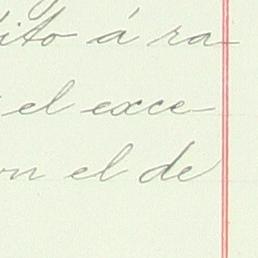 ito á ra-
el exce-
on el de